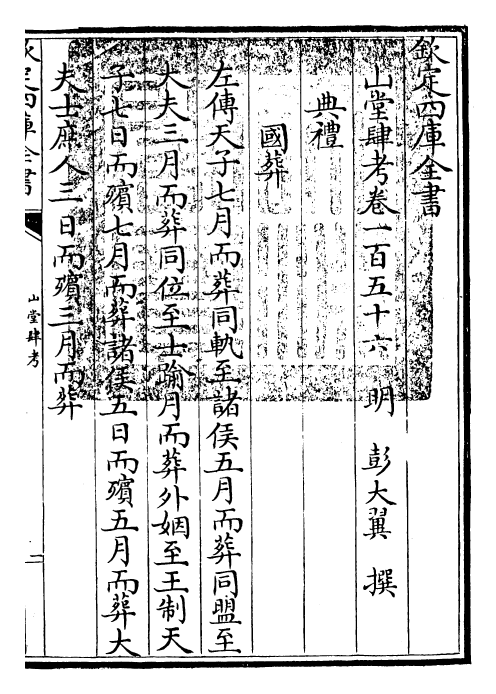 欽定四庫全書
山堂肆考卷一百五十六　明　彭大翼　撰
典禮
國葬
左傳天子七月而葬同軌至諸侯五月而葬同盟至
大夫三月而葬同位至士踰月而葬外姻至王制天
子七日而殯七月而葬諸侯五日而殯五月而葬大
夫士庶人三日而殯三月而葬
欽定四庫全書
山堂肆考